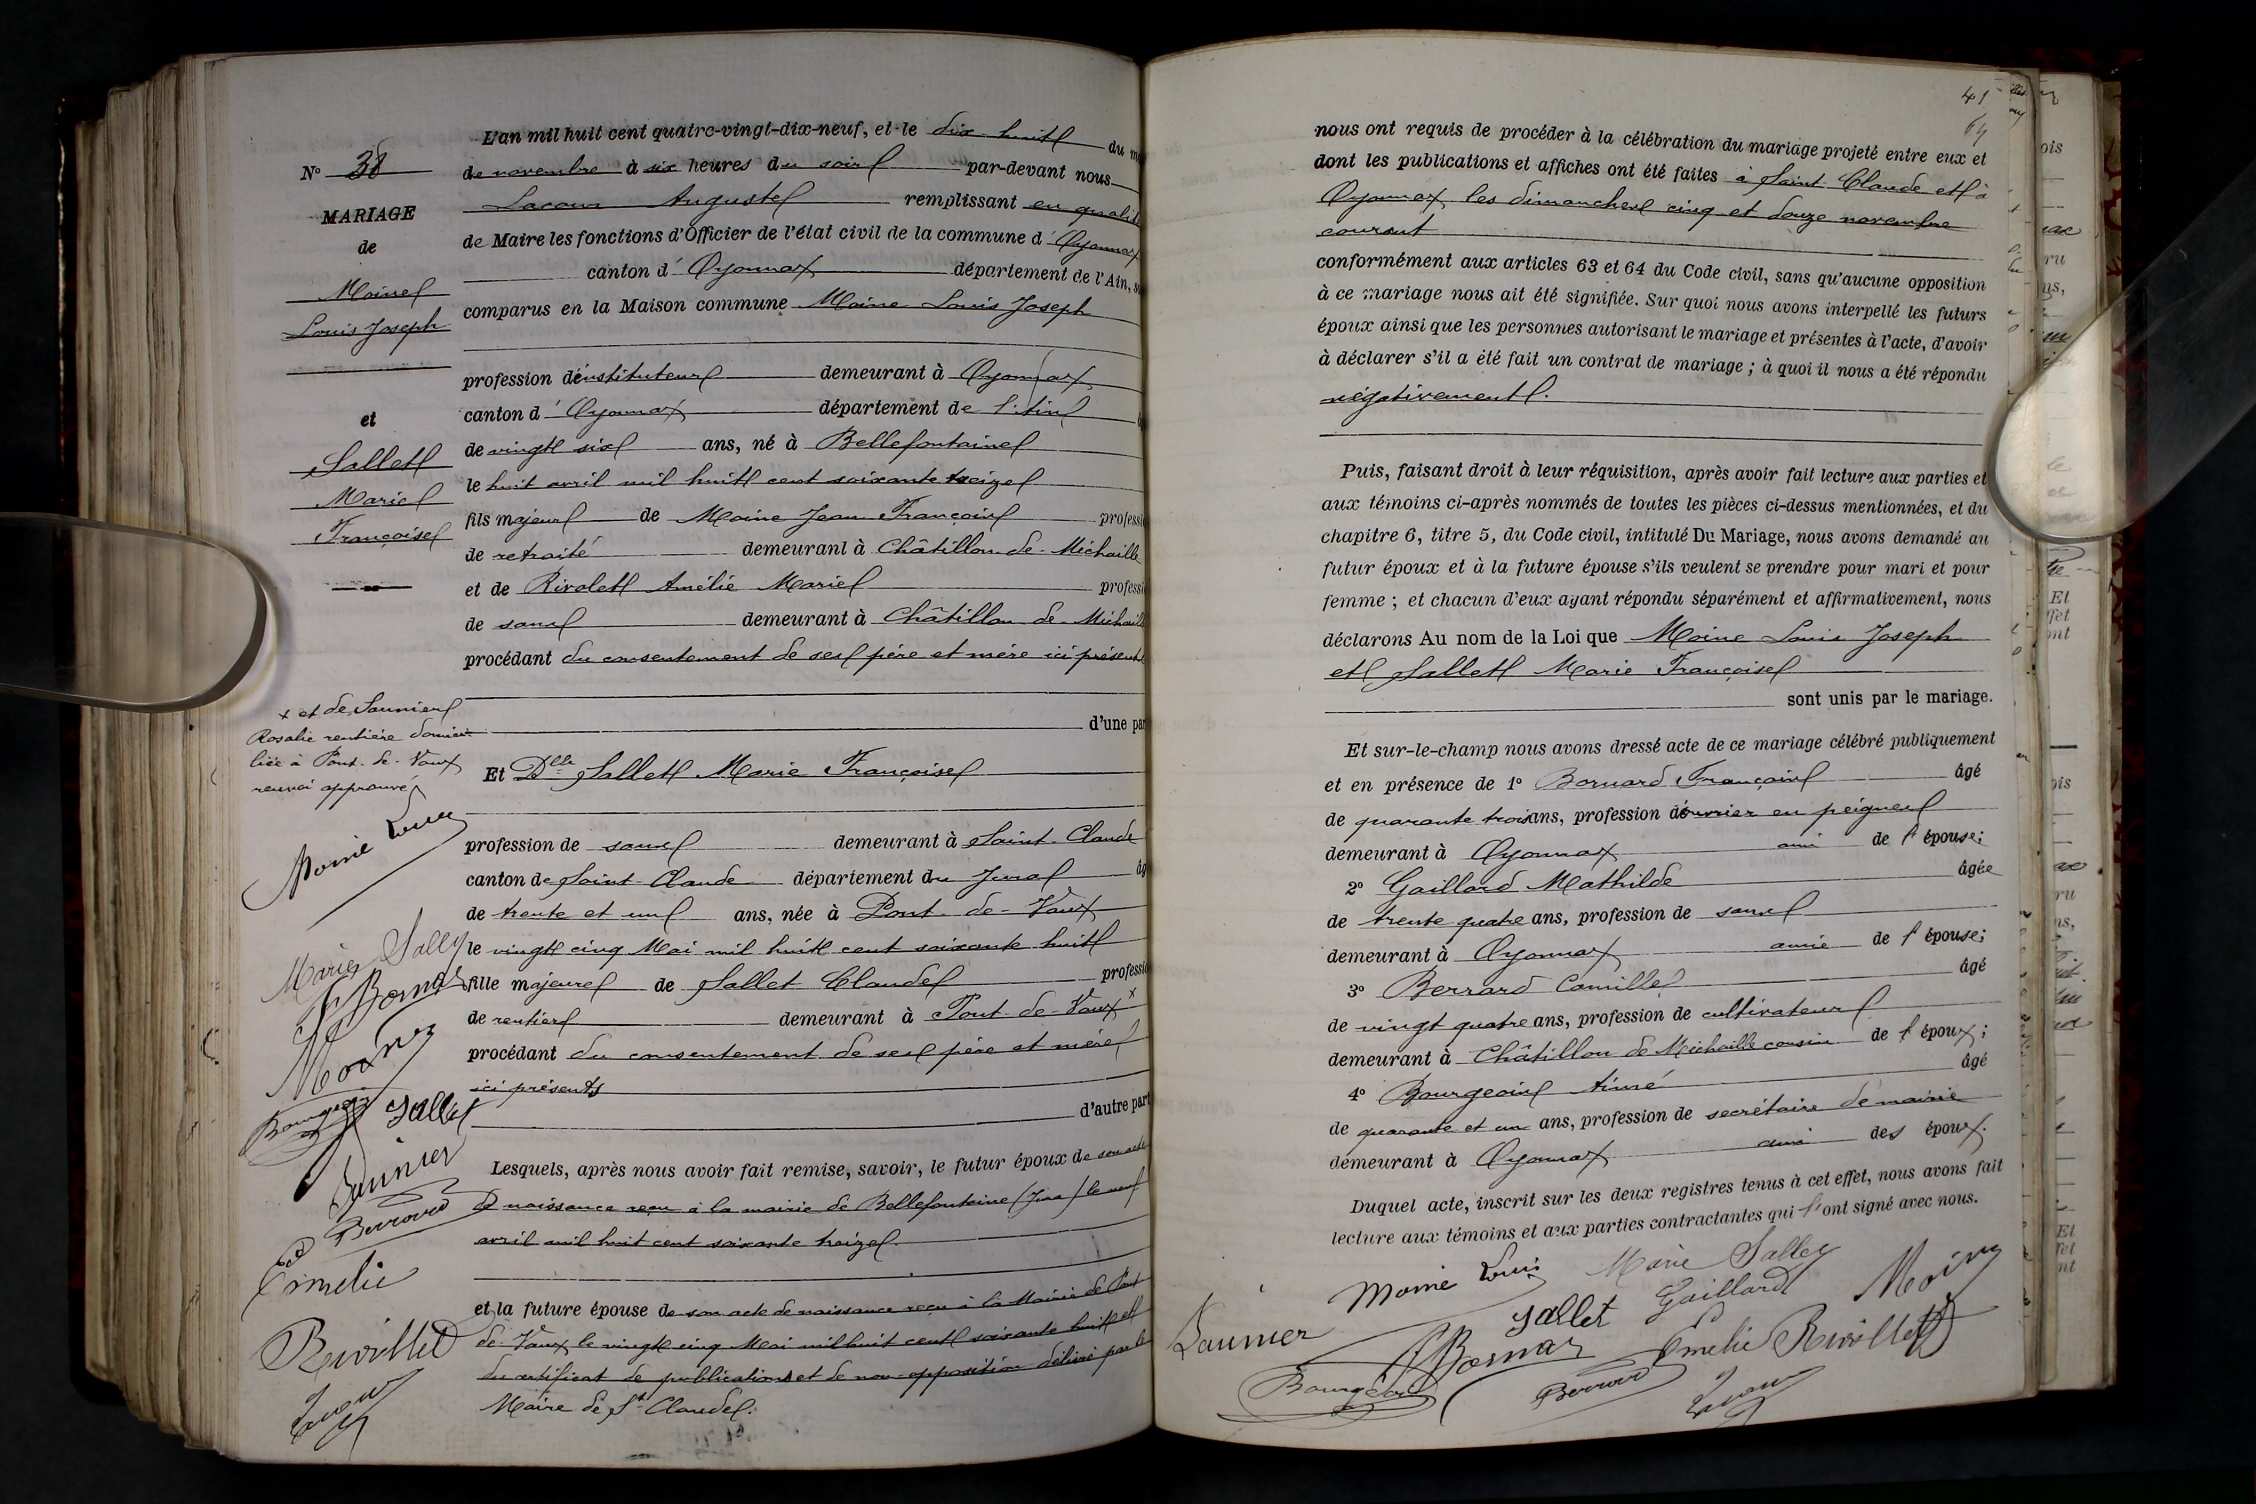 N° 38
MARIAGE
de
Moine
Louis Joseph
et
Sallet
Marie
Françoise
L'an mil huit cent quatre-vingt-dix-neuf, et le dix huit du
de novembre à six heures du soir par-devant nous
Lacour Auguste remplissant en qualité
de Maire les fonctions d'Officier de l'état civil de la commune d'Oyonnax
canton d'Oyonnax département de l'Ain,
comparus en la Maison commune Moine Louis Joseph
profession d'instituteur demeurant à Oyonnax
canton d'Oyonnax département de l'Ain
de vingt six ans, né à Bellefontaine
le huit avril mil huit cent soixante treize
fils majeur de Moine Jean François profession
de retraité demeurant à Châtillon-de-Michaille
et de Rivolet Amélie Marie profession
de sans demeurant à Châtillon-de-Michaille
procédant du consentement de ses père et mère ici présents
d'une part
Et Dlle Sallet Marie Françoise
profession de sans demeurant à Saint-Claude
canton de Saint-Claude département du Jura
de trente et un ans, née à Pont-de-Vaux
le vingt cinq Mai mil huit cent soixante huit
fille majeure de Sallet Claude profession
de rentier demeurant à Pont-de-Vaux x
procédant du consentement de ses père et mère
ici présents
d'autre part
Lesquels, après nous avoir fait remise, savoir, le futur époux de son acte
de naissance reçu à la mairie de Bellefontaine (Jura) le neuf
avril mil huit cent soixante treize.
et la future épouse de son acte de naissance reçu à la Mairie de Pont
de-Vaux le vingt cinq Mai mil huit cent soixante huit et
du certificat de publications et de non-opposition délivré par le
Maire de St Claude.
x et de Saunier
Rosalie rentière domici-
liée à Pont-de-Vaux
renvoi approuvé
Moine Louis
Marie Sallet
F Bornar
Moine
Bourgeois
Sallet
Saunier
Berrard
Emelie
Rivollet
41
nous ont requis de procéder à la célébration du mariage projeté entre eux et
dont les publications et affiches ont été faites à Saint-Claude et à
Oyonnax les dimanches cinq et douze novembre
courant
conformément aux articles 63 et 64 du Code civil, sans qu'aucune opposition
à ce mariage nous ait été signifiée. Sur quoi nous avons interpellé les futurs
époux ainsi que les personnes autorisant le mariage et présentes à l'acte, d'avoir
à déclarer s'il a été fait un contrat de mariage ; à quoi il nous a été répondu
négativement.
Puis, faisant droit à leur réquisition, après avoir fait lecture aux parties et
aux témoins ci-après nommés de toutes les pièces ci-dessus mentionnées, et du
chapitre 6, titre 5, du Code civil, intitulé Du Mariage, nous avons demandé au
futur époux et à la future épouse s'ils veulent se prendre pour mari et pour
femme ; et chacun d'eux ayant répondu séparément et affirmativement, nous
déclarons Au nom de la Loi que Moine Louis Joseph
et Sallet Marie Françoise
sont unis par le mariage.
Et sur-le-champ nous avons dressé acte de ce mariage célébré publiquement
et en présence de 1° Bornard François âgé
de quarante trois ans, profession d'ouvrier en peignes
demeurant à Oyonnax ami de l'épouse;
2° Gaillard Mathilde âgée
de trente quatre ans, profession de sans
demeurant à Oyonnax amie de l'épouse;
3° Berrard Camille âgé
de vingt quatre ans, profession de cultivateur
demeurant à Châtillon de Michaille cousin de l'époux;
4° Bourgeois Aimé âgé
de quarante et un ans, profession de secrétaire de mairie
demeurant à Oyonnax ami des époux.
Duquel acte, inscrit sur les deux registres tenus à cet effet, nous avons fait
lecture aux témoins et aux parties contractantes qui l'ont signé avec nous.
Moine Louis Marie Sallet Moine
Saunier Sallet Gaillard
F Bornar Emelie Rivollet
Bourgeois Berrard